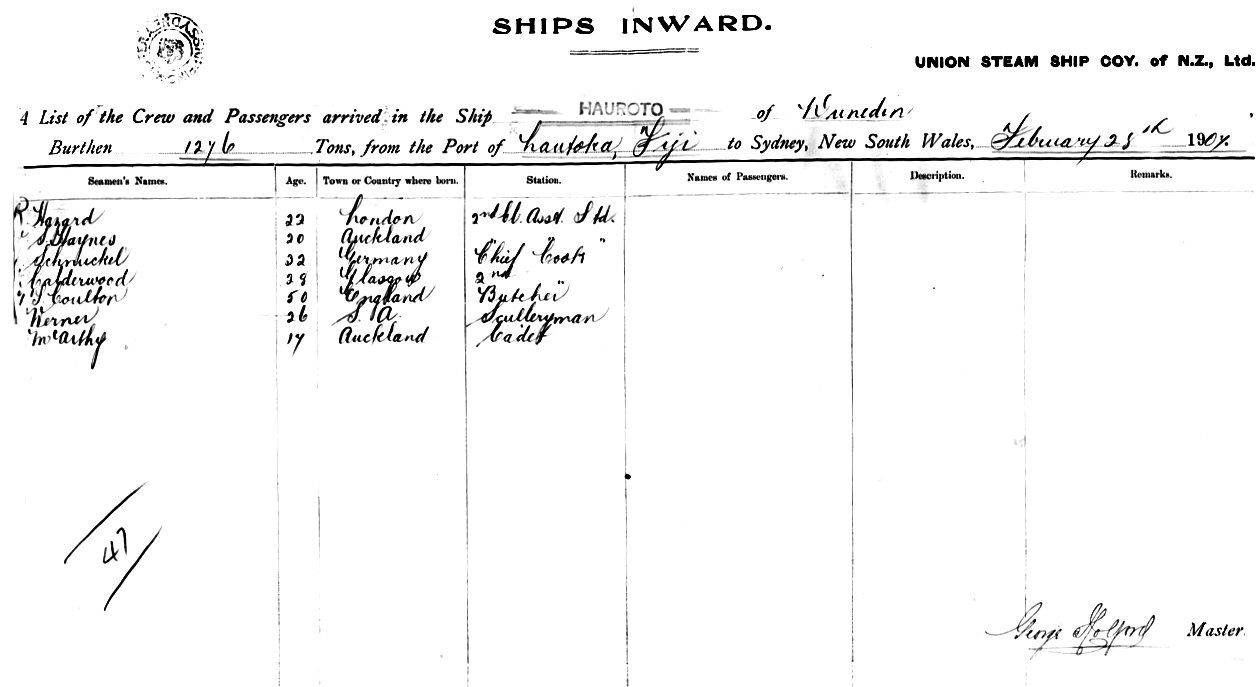 SHIPS INWARD.
UNION STEAM SHIP COY. of N.Z., Ltd.
A List of the Crew and Passengers arrived in the Ship HAUROTO of Dunedin
Burthen 1276 Tons, from the Port of Lautoka, Fiji to Sydney, New South Wales, February 28th 1907.
Seamen's Names. Age. Town or Country where born. Station. Names of Passengers. Description. Remarks.
R. Hazard 22 London 2nd Cl. Asst. Std.
S. Haynes 20 Auckland " "
Schmuckel 32 Germany Chief Cook
Calderwood 28 Glasgow 2nd "
S. Coulton 50 England Butcher
Werner 26 S. A. Sculleryman
McArthy 17 Auckland Cadet
47
George Holford Master.